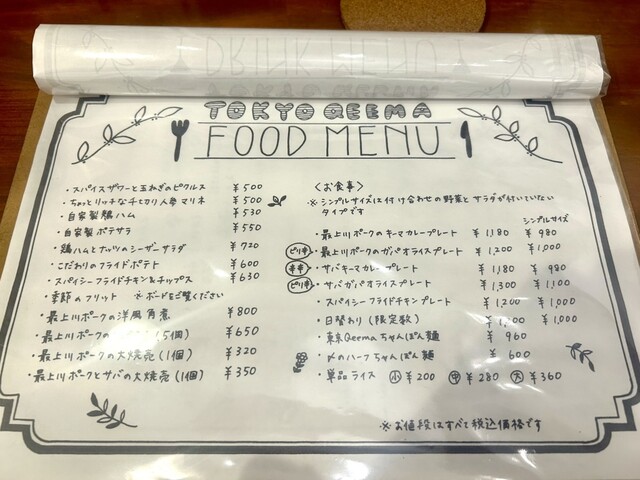 TOKYO QEEMA
FOOD MENU
・スパイスザワーと玉ねぎのピクルス ¥500
・ちょっとリッチな千切り人参マリネ ¥500
・自家製鶏ハム ¥530
・自家製ポテサラ ¥550
・鶏ハムとナッツのシーザーサラダ ¥720
・こだわりのフライドポテト ¥600
・スパイシーフライドチキン&チップス ¥630
季節のフリット ※ボードをご覧ください
・最上川ポークの洋風角煮 ¥800
・最上川ポークの (5個) ¥650
・最上川ポークの大焼売(1個) ¥320
・最上川ポークとサバの大焼売(1個) ¥350
〈お食事〉
※シンプルサイズは付け合わせの野菜とサラダが付いていない
タイプです
シンプルサイズ
・最上川ポークのキーマカレープレート ¥1,180 ¥980
ピリ辛 ・最上川ポークのガパオライスプレート ¥1,200 ¥1,000
・サバキーマカレープレート ¥1,180 ¥980
ピリ辛 ・サバガパオライスプレート ¥1,300 ¥1,100
・スパイシーフライドチキンプレート ¥1,200 ¥1,000
・日替わり(限定数) ¥1,000
・東京Qeemaちゃんぽん麺 ¥960
・〆のハーフちゃんぽん麺 ¥600
・単品ライス 小 ¥200 中 ¥280 大 ¥360
※お値段はすべて税込価格です